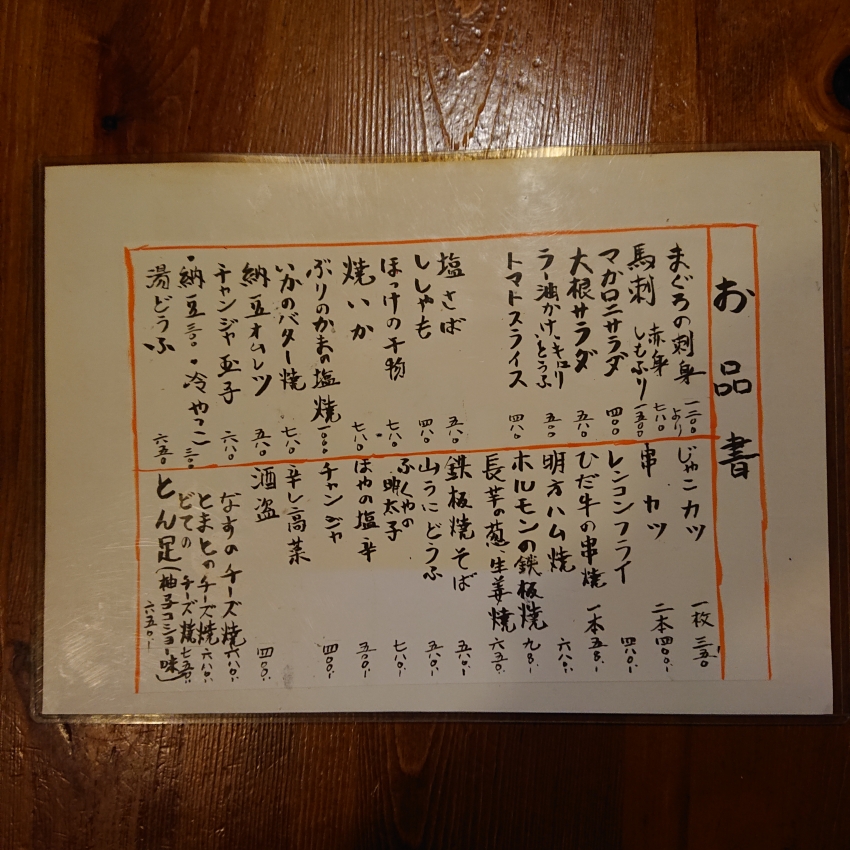 お品書
まぐろの刺身 一二〇〇より
馬刺 赤身 七八〇
しもふり 一五〇〇
マカロニサラダ 四〇〇
大根サラダ 五八〇
ラー油かけ、キュウリ、とうふ 五〇〇
トマトスライス 四八〇
塩さば 五八〇
ししゃも 四八〇
ほっけの干物 七八〇
焼いか 七八〇
ぶりのかまの塩焼 一〇〇〇
いかのバター焼 七八〇
納豆オムレツ 五八〇
チャンジャ玉子 六八〇
・納豆 三〇〇・冷やっこ 三〇〇
湯どうふ 六五〇
じゃこカツ 一枚 三五〇
串カツ 二本 四〇〇.-
レンコンフライ 四八〇.-
ひだ牛の串焼 一本 五八〇.-
明方ハム焼 六八〇.-
ホルモンの鉄板焼 九八〇.-
長芋の葱、生姜焼 六五〇.-
鉄板焼そば 五八〇.-
山うにどうふ 五八〇.-
ふくやの明太子 七八〇.-
ほやの塩辛 五〇〇.-
チャンジャ 四〇〇.-
辛し高菜
酒盗 四〇〇.-
なすのチーズ焼 六八〇.-
とまとのチーズ焼 六八〇.-
どてのチーズ焼 七五〇.-
とん足(柚子コショー味) 六五〇.-